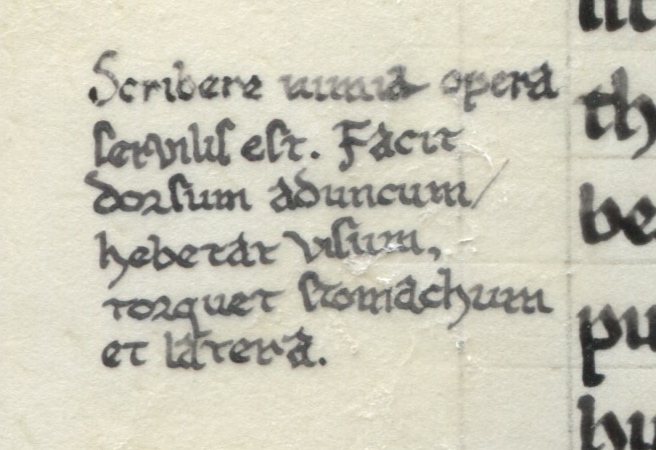 Scribere nimia opera
ſervilis eſt. Facit
dorſum aduncum/
hebetat viſum,
torquet ſtomachum
et latera.
th
be
pu
hu